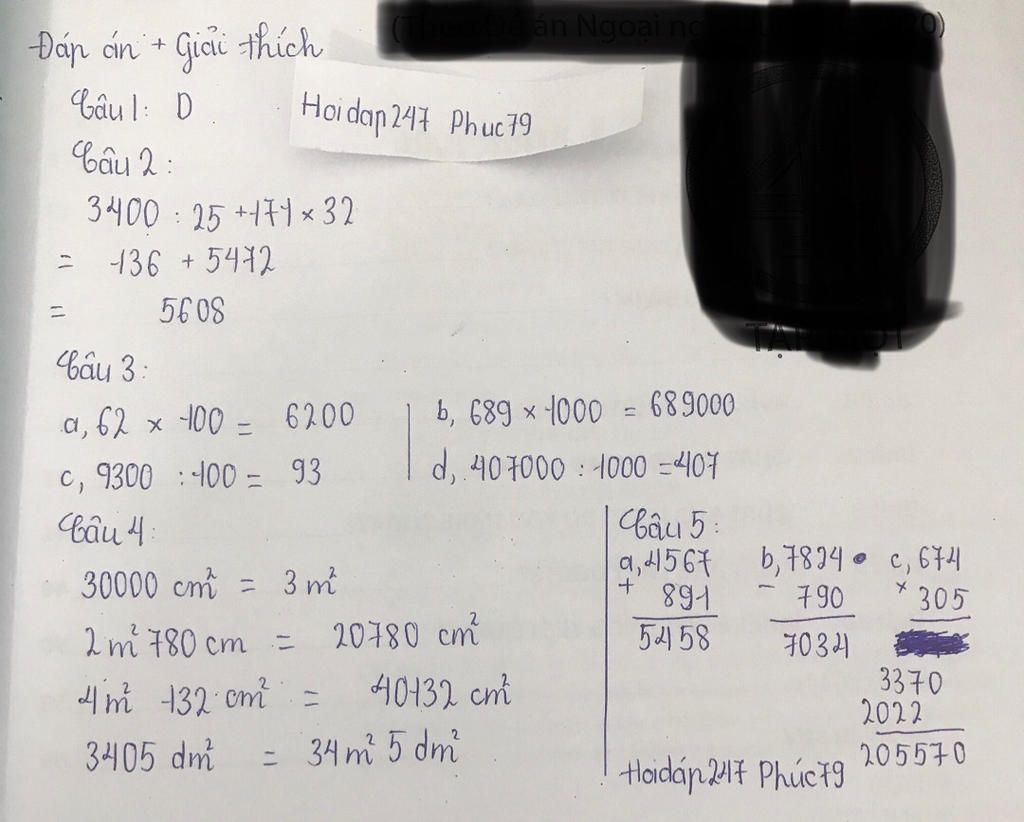 (Theo Đề án Ngoại ng
20)
Đáp án + Giải thích
Câu 1: D
Hoidap247 Phuc79
Câu 2:
3400 : 25 + 171 x 32
= 136 + 5472
= 5608
Câu 3:
a, 62 x 100 = 6200
b, 689 x 1000 = 689000
c, 9300 : 100 = 93
d, 407000 : 1000 = 407
Câu 4:
30000 cm² = 3 m²
2 m² 780 cm = 20780 cm²
4 m² 132 cm² = 40132 cm²
3405 dm² = 34 m² 5 dm²
Câu 5:
a, 4567
+ 891
5458
b, 7824
- 790
7034
c, 674
x 305
3370
2022
205570
Hoidáp247 Phúc79